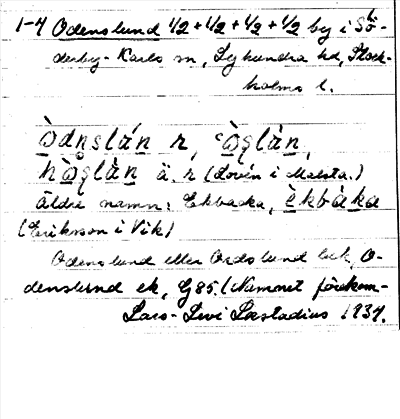 1-4 Odenslund 1/2 + 1/2 + 1/2 + 1/2 by i Sö-
derby-Karls sn, Lyhundra hd, Stock-
holms l.
òdnslán r,
hòglàn ä. r (Lovén i Malsta.)
äldre namn: Ekbacka, èkbàka
(Eriksson i Vik)
Odenslund eller Ordslund bek, O-
denslund ek, G85. (Namnet förekom-
Lars-Levi Læstadius 1937.